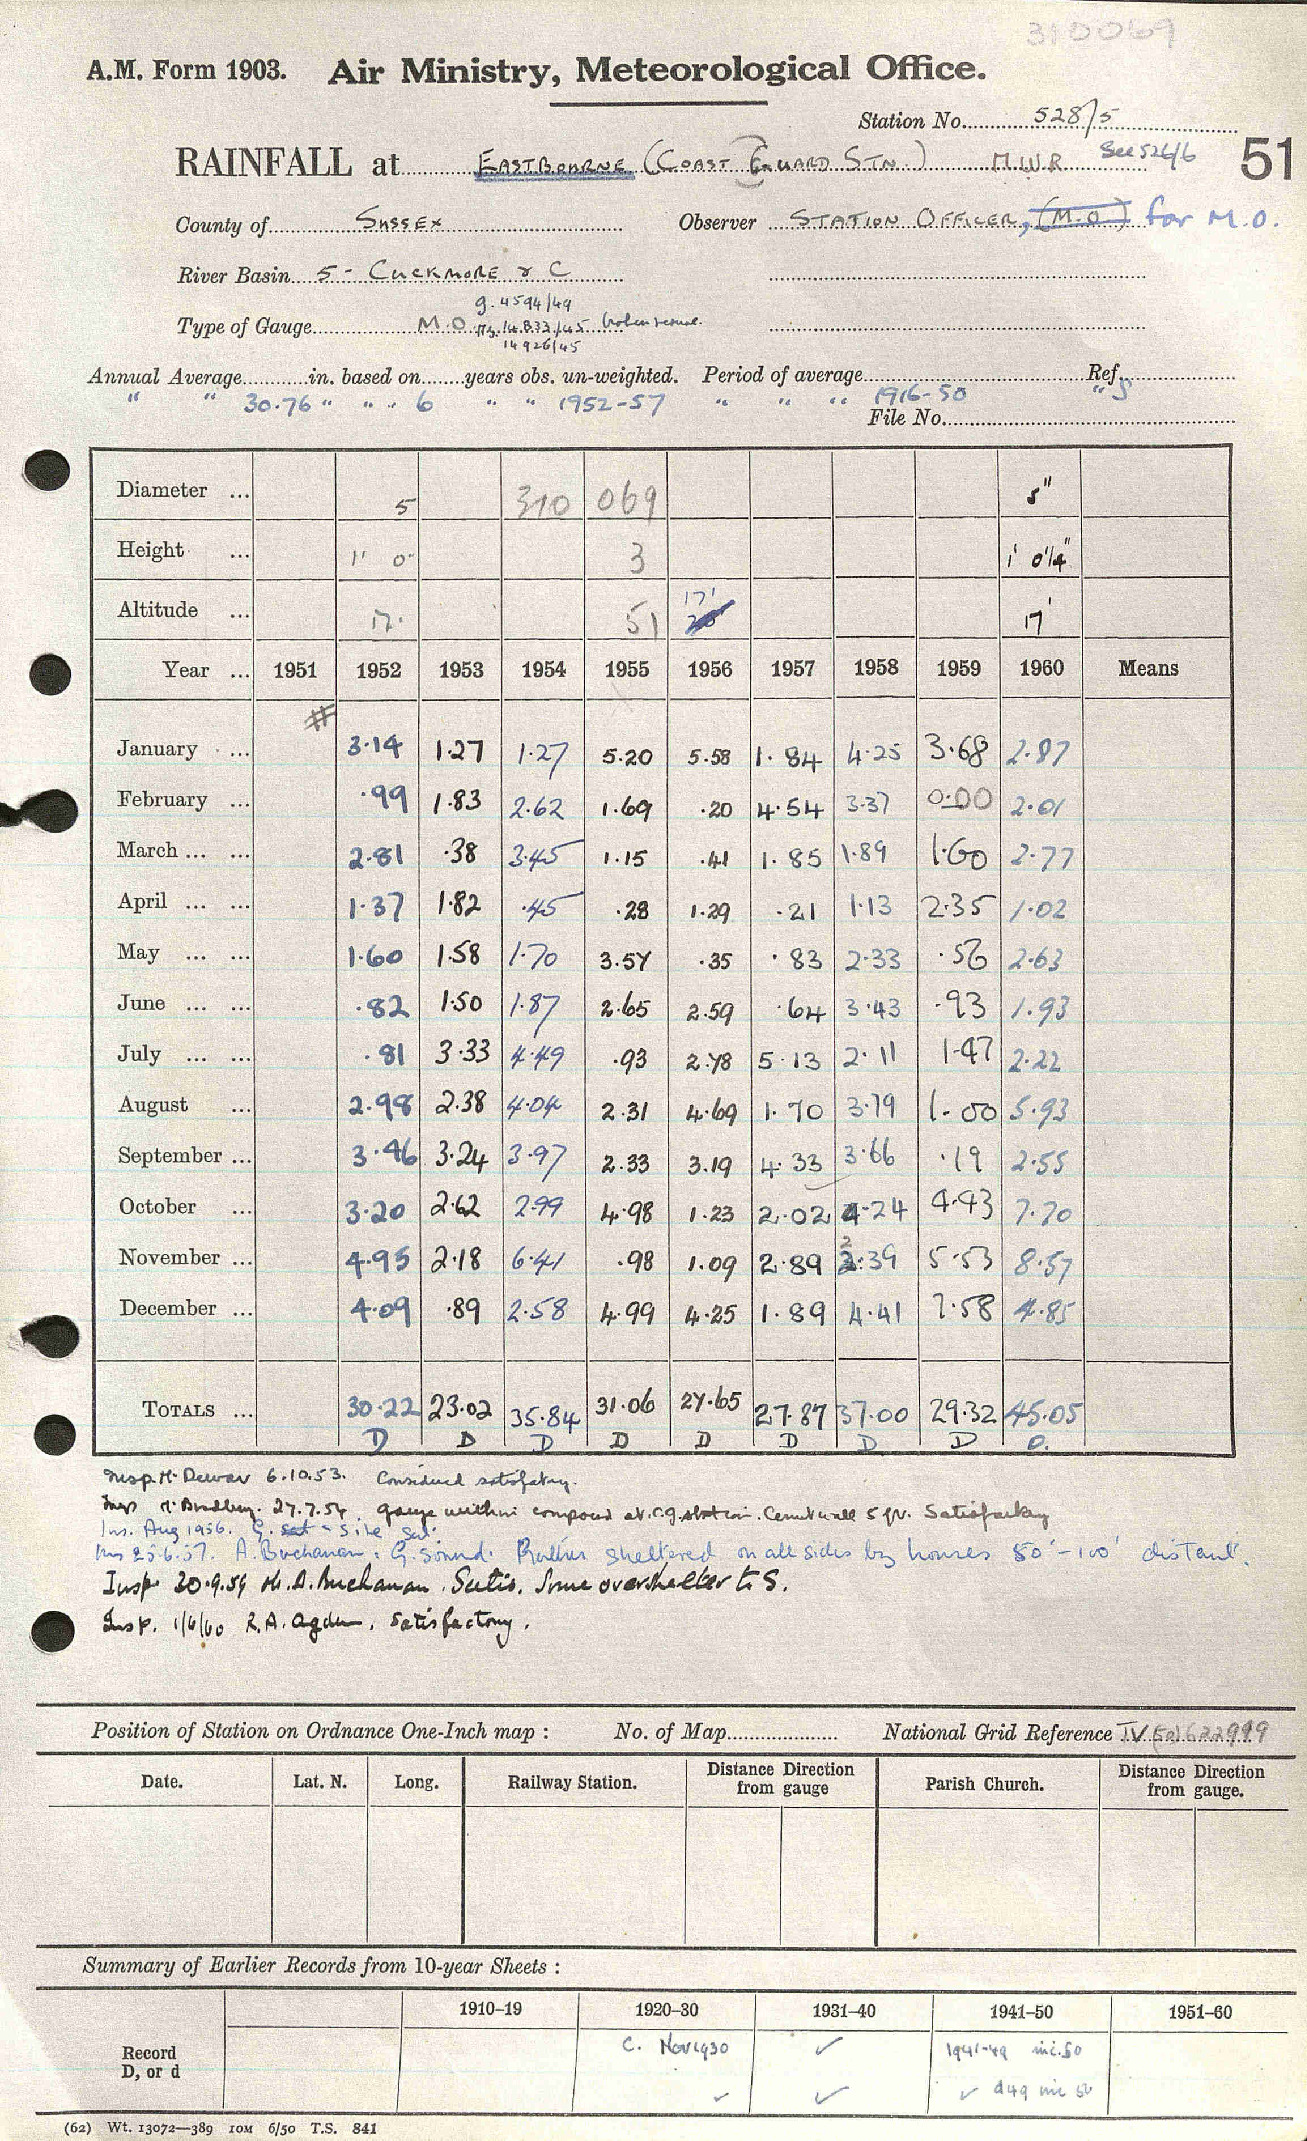 310069
A.M. Form 1903. Air Ministry, Meteorological Office.
Station No. 528/5
RAINFALL at EASTBOURNE (COAST GUARD STN.) M.W.R See 526/6 51
County of SUSSEX Observer STATION OFFICER, (M.O) for M.O.
River Basin 5 - CUCKMORE & C
g. 4594/49
Type of Gauge M.O 14833/45 broken
14926/45
Annual Average in. based on years obs. un-weighted. Period of average Ref.
" " 30.76 " " " 6 " " 1952-57 " " " 1916-50 "
File No.
Diameter ... 5 310 069 5"
Height ... 1' 0" 3 1' 0¼"
17'
Altitude ... 17. 51 17'
Year ... 1951 1952 1953 1954 1955 1956 1957 1958 1959 1960 Means
#
January ... 3.14 1.27 1.27 5.20 5.58 1.84 4.25 3.68 2.87
February ... .99 1.83 2.62 1.69 .20 4.54 3.37 0.00 2.01
March ... ... 2.81 .38 3.45 1.15 .41 1.85 1.89 1.60 2.77
April ... ... 1.37 1.82 .45 .28 1.29 .21 1.13 2.35 1.02
May ... ... 1.60 1.58 1.70 3.57 .35 .83 2.33 .56 2.63
June ... ... .82 1.50 1.87 2.65 2.59 .64 3.43 .93 1.93
July ... ... .81 3.33 4.49 .93 2.78 5.13 2.11 1.47 2.22
August ... 2.98 2.38 4.04 2.31 4.69 1.70 3.79 1.00 5.93
September ... 3.46 3.24 3.97 2.33 3.19 4.33 3.66 .19 2.55
October ... 3.20 2.62 2.99 4.98 1.23 2.02 4.24 4.43 7.70
2
November ... 4.95 2.18 6.41 .98 1.09 2.89 2.39 5.53 8.57
December ... 4.09 .89 2.58 4.99 4.25 1.89 4.41 7.58 4.85
TOTALS ... 30.22 23.02 35.84 31.06 27.65 27.87 37.00 29.32 45.05
D D D D D D D D D.
Insp. Mr Dewar 6.10.53. Considered satisfactory.
Insp Mr Bradbury. 27.7.54 gauge within compound at C.G. station. Cement wall 5 yds. Satisfactory
Ins. Aug 1956. G. sat - site sat.
Ins 25.6.57. A. Buchanan: G. sound. Rather sheltered on all sides by houses 80'-100' distant.
Insp 30.9.59 Mr. A. Buchanan. Satis. Some overshelter to S.
Insp. 1/6/60 R.A. Ogden. Satisfactory.
Position of Station on Ordnance One-Inch map : No. of Map National Grid Reference TV (50) 622999
Date. Lat. N. Long. Railway Station. Distance Direction from gauge Parish Church. Distance Direction from gauge.
Summary of Earlier Records from 10-year Sheets :
1910-19 1920-30 1931-40 1941-50 1951-60
Record C. Nov 1930 ✓ 1941-49 inc. 50
D, or d ✓ ✓ ✓ d49 inc 50
(62) Wt. 13072—389 10M 6/50 T.S. 841